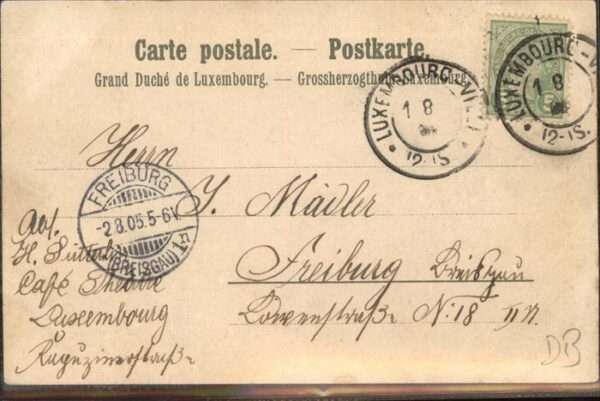 Carte postale. — Postkarte.
Grand Duché de Luxembourg. — Grossherzogthum Luxemburg.
LUXEMBOURG-VILLE
1 8
12-1S.
LUXEMBOURG-VI
1 8
12-1S.
Herrn
J. Mädler
Freiburg Breisgau
Löwenstraße N: 18
FREIBURG
-2.8.05.5-6V.
(BREISGAU)
Abs.
H.
Café Théâtre
Luxembourg
Kapuzinerstraße
DB